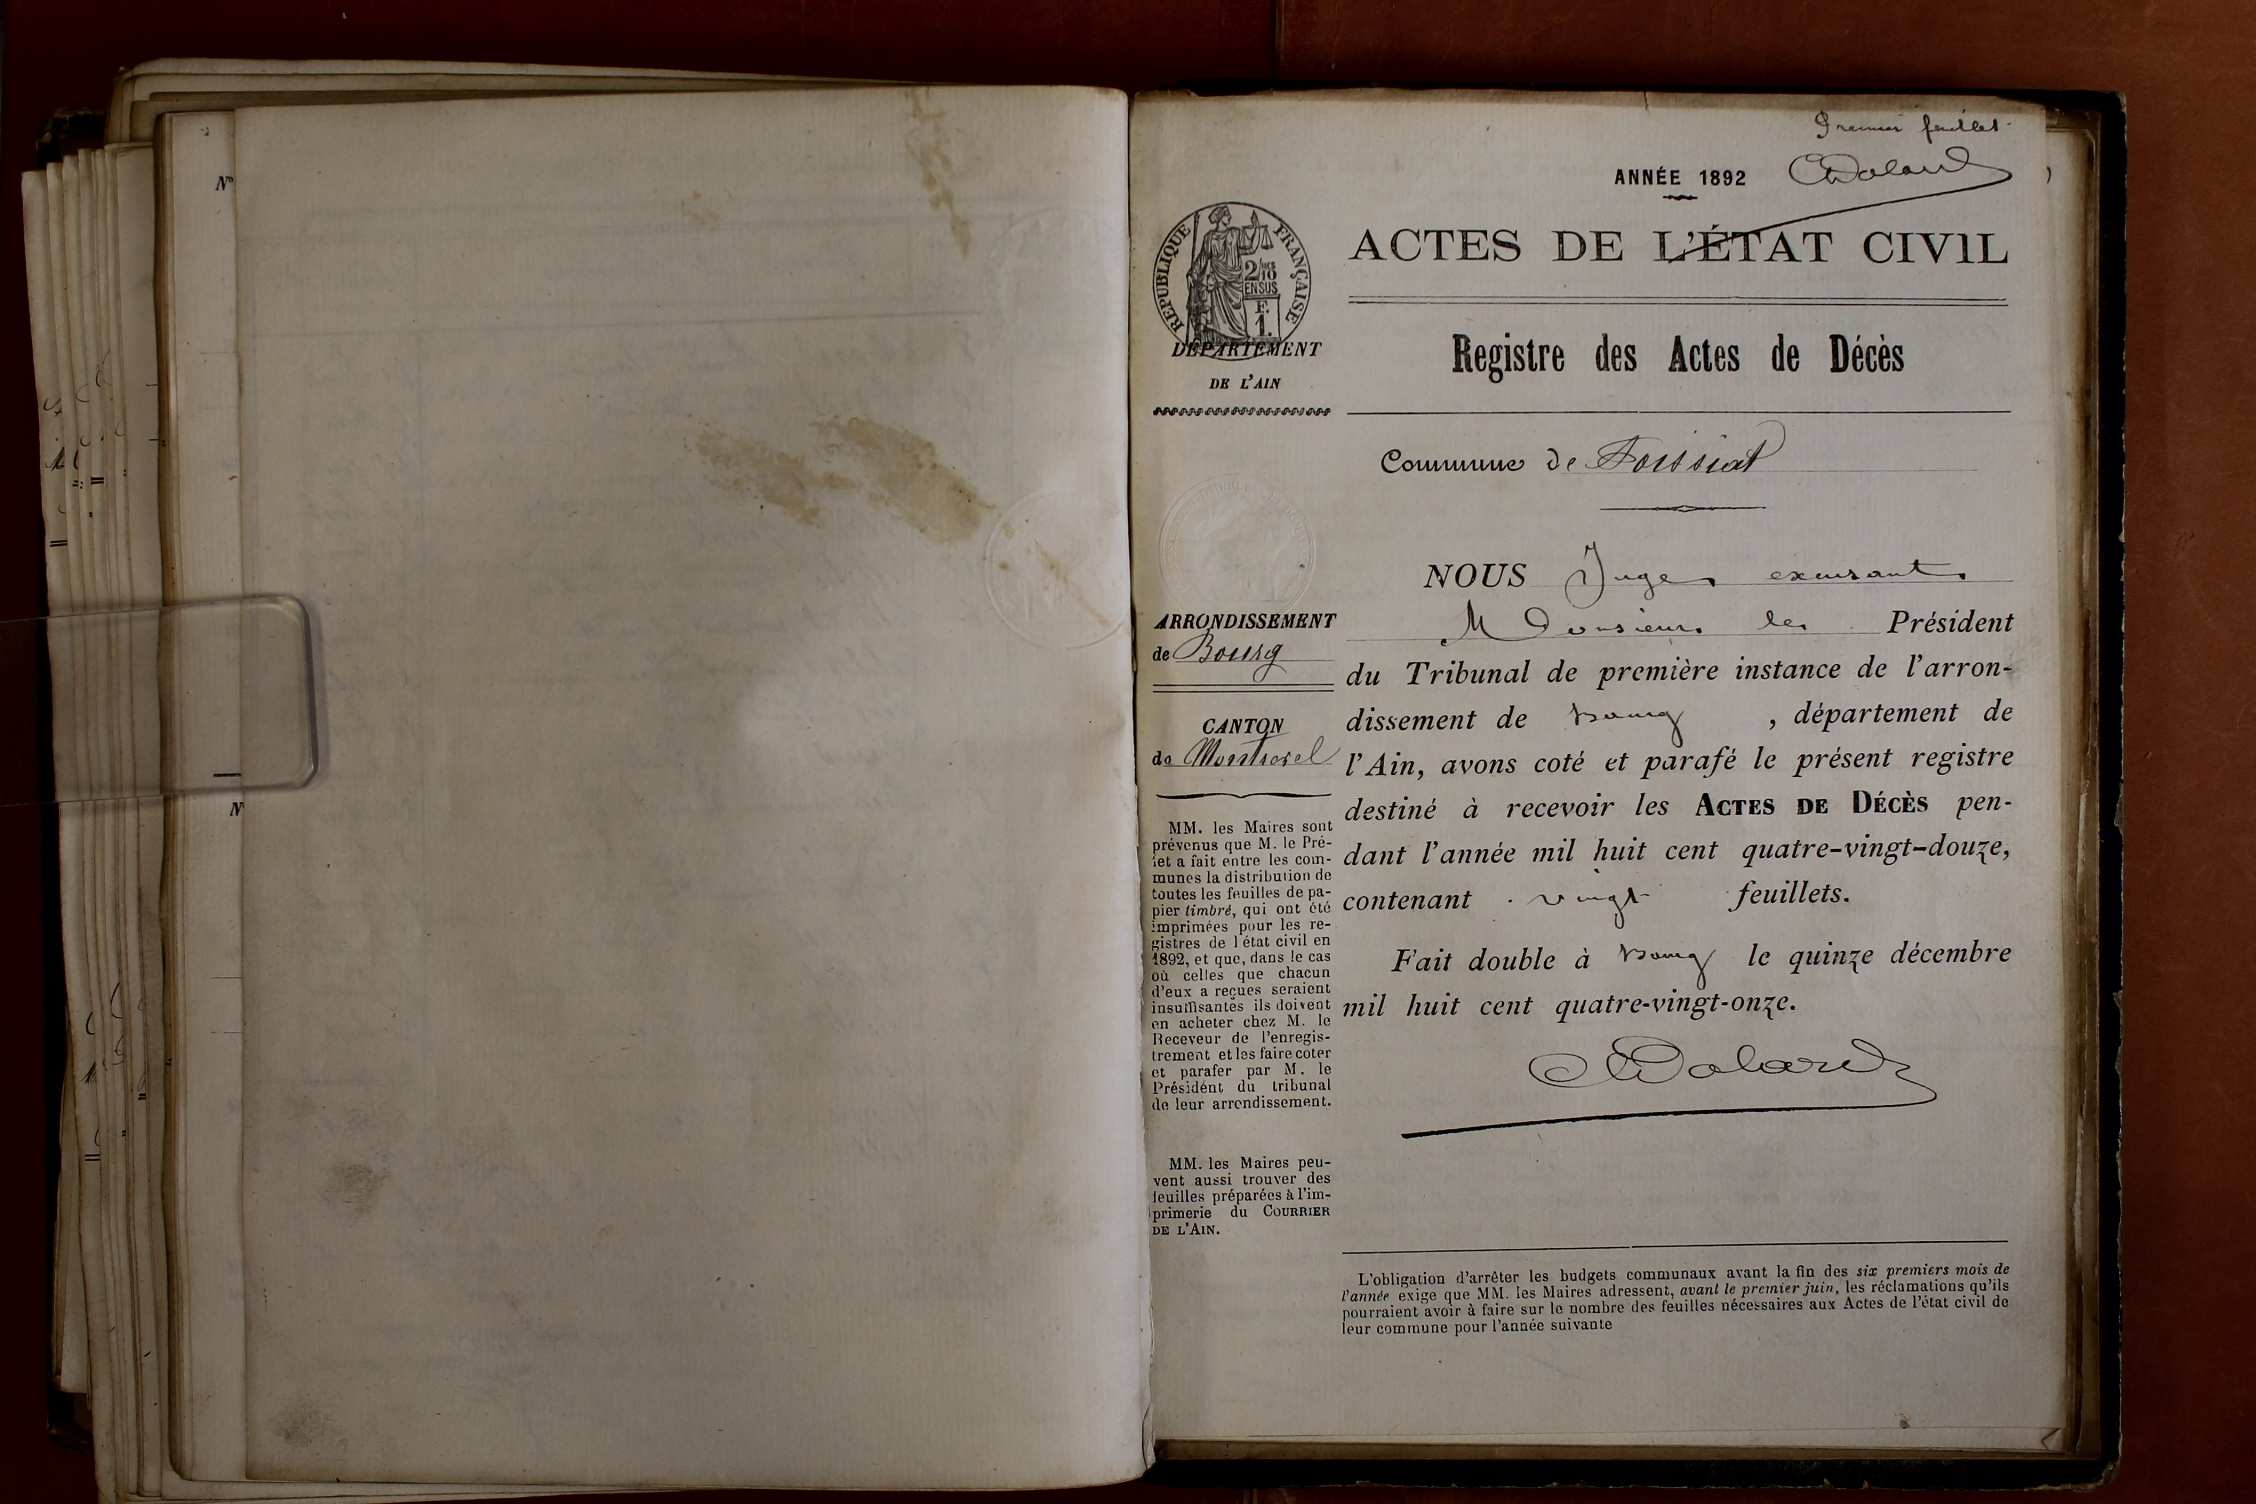 Nº
N
Premier feuillet
ANNÉE 1892
RÉPUBLIQUE FRANÇAISE
2/10
EN SUS
F.
1.
ACTES DE L'ÉTAT CIVIL
DÉPARTEMENT
DE L'AIN
Registre des Actes de Décès
Commune de Foissiat
ARRONDISSEMENT
de Bourg
CANTON
de Montrevel
MM. les Maires sont
prévenus que M. le Pré-
fet a fait entre les com-
munes la distribution de
toutes les feuilles de pa-
pier timbré, qui ont été
imprimées pour les re-
gistres de l'état civil en
1892, et que, dans le cas
où celles que chacun
d'eux a reçues seraient
insuffisantes ils doivent
en acheter chez M. le
Receveur de l'enregis-
trement et les faire coter
et parafer par M. le
Président du tribunal
de leur arrondissement.
MM. les Maires peu-
vent aussi trouver des
feuilles préparées à l'im-
primerie du COURRIER
DE L'AIN.
NOUS Juge excusant
Monsieur le Président
du Tribunal de première instance de l'arron-
dissement de Bourg, département de
l'Ain, avons coté et parafé le présent registre
destiné à recevoir les ACTES DE DÉCÈS pen-
dant l'année mil huit cent quatre-vingt-douze,
contenant vingt feuillets.
Fait double à Bourg le quinze décembre
mil huit cent quatre-vingt-onze.
L'obligation d'arrêter les budgets communaux avant la fin des six premiers mois de
l'année exige que MM. les Maires adressent, avant le premier juin, les réclamations qu'ils
pourraient avoir à faire sur le nombre des feuilles nécessaires aux Actes de l'état civil de
leur commune pour l'année suivante